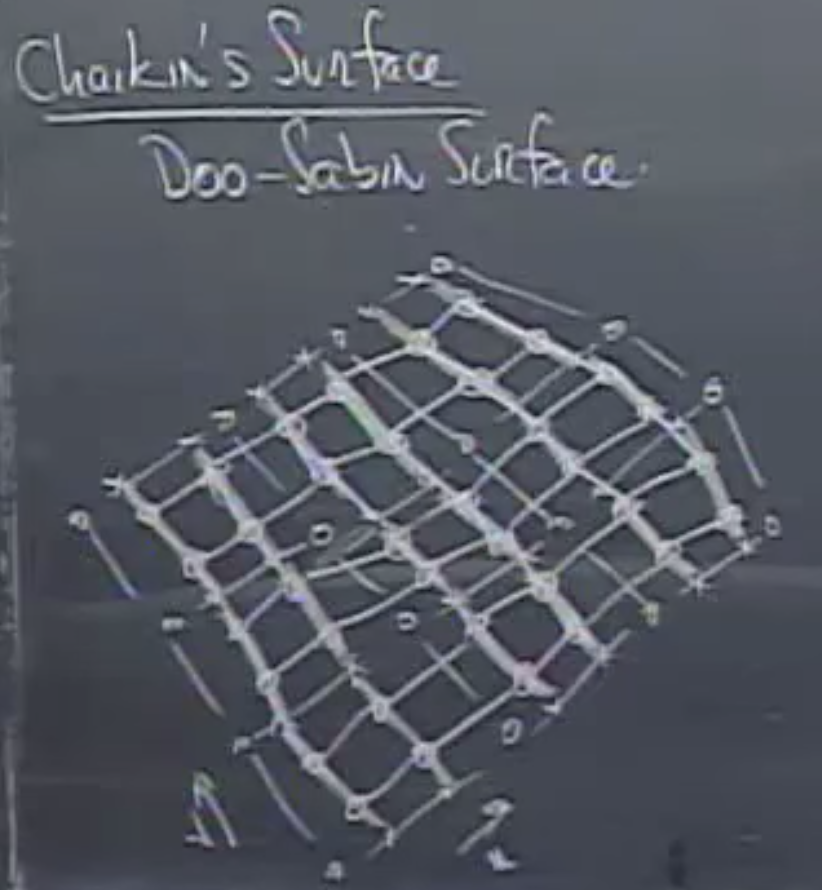 Chaikin's Surface
Doo-Sabin Surface.